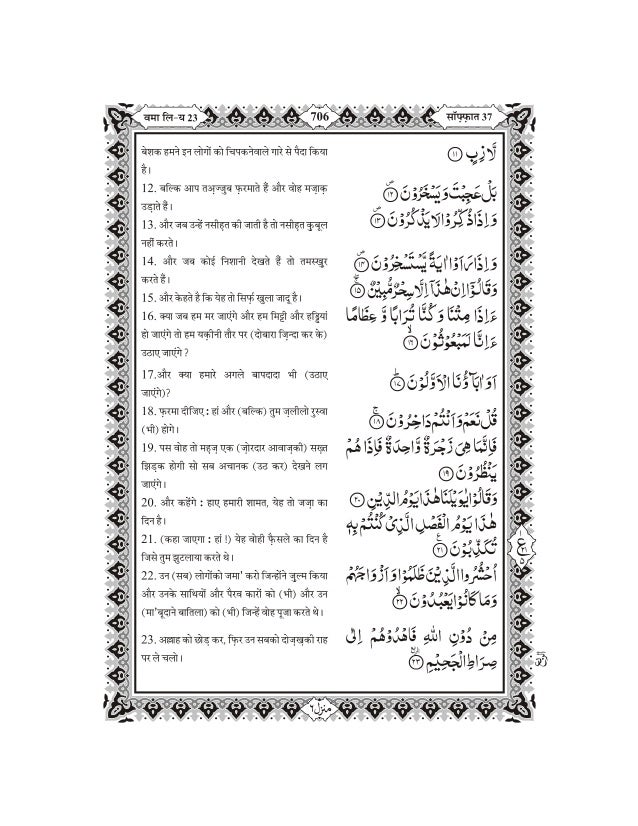 वमा लि-य 23
706
सॉफ़्फ़ात 37
बेशक हमने इन लोगों को चिपकनेवाले गारे से पैदा किया
है।
12. बल्कि आप तअ़ज्जुब फ़रमाते हैं और वोह मज़ाक़
उड़ाते हैं।
13. और जब उन्हें नसीह़त की जाती है तो नसीह़त क़ुबूल
नहीं करते।
14. और जब कोई निशानी देखते हैं तो तमस्ख़ुर
करते हैं।
15. और केहते है कि येह तो सिर्फ़ खुला जादू है।
16. क्या जब हम मर जाएंगे और हम मिट्टी और हड्डियां
हो जाएंगे तो हम यक़ीनी तौर पर (दोबारा ज़िन्दा कर के)
उठाए जाएंगे ?
17.और क्या हमारे अगले बापदादा भी (उठाए
जाएंगे)?
18. फ़रमा दीजिए : हां और (बल्कि) तुम ज़लीलो रुस्वा
(भी) होगे।
19. पस वोह तो मह़ज़ एक (ज़ोरदार आवाज़की) सख़्त
झिड़क होगी सो सब अचानक (उठ कर) देखने लग
जाएंगे।
20. और कहेंगे : हाए हमारी शामत, येह तो जज़ा का
दिन है।
21. (कहा जाएगा : हां !) येह वोही फ़ैसले का दिन है
जिसे तुम झुटलाया करते थे।
22. उन (सब) लोगोंको जमा' करो जिन्होंने ज़ुल्म किया
और उनके साथियों और पैरव कारों को (भी) और उन
(मा'बूदाने बातिला) को (भी) जिन्हें वोह पूजा करते थे।
23. अल्लाह को छोड़ कर, फिर उन सबको दोज़ख़की राह
पर ले चलो।
لَّازِبٍ ﴿۱۱﴾
بَلْ عَجِبْتَ وَ يَسْخَرُوْنَ ﴿۱۲﴾
وَ اِذَا ذُكِّرُوْا لَا يَذْكُرُوْنَ ﴿۱۳﴾
وَ اِذَا رَاَوْا اٰيَةً يَّسْتَسْخِرُوْنَ ﴿۱۴﴾
وَ قَالُوْۤا اِنْ هٰذَاۤ اِلَّا سِحْرٌ مُّبِيْنٌ ﴿۱۵﴾
ءَاِذَا مِتْنَا وَ كُنَّا تُرَابًا وَّ عِظَامًا
ءَاِنَّا لَمَبْعُوْثُوْنَ ﴿۱۶﴾
اَوَ اٰبَآؤُنَا الْاَوَّلُوْنَ ﴿۱۷﴾
قُلْ نَعَمْ وَ اَنْتُمْ دَاخِرُوْنَ ﴿۱۸﴾
فَاِنَّمَا هِيَ زَجْرَةٌ وَّاحِدَةٌ فَاِذَا هُمْ
يَنْظُرُوْنَ ﴿۱۹﴾
وَ قَالُوْا يٰوَيْلَنَا هٰذَا يَوْمُ الدِّيْنِ ﴿۲۰﴾
هٰذَا يَوْمُ الْفَصْلِ الَّذِيْ كُنْتُمْ بِهٖ
تُكَذِّبُوْنَ ﴿۲۱﴾
اُحْشُرُوا الَّذِيْنَ ظَلَمُوْا وَ اَزْوَاجَهُمْ
وَ مَا كَانُوْا يَعْبُدُوْنَ ﴿۲۲﴾
مِنْ دُوْنِ اللّٰهِ فَاهْدُوْهُمْ اِلٰى
صِرَاطِ الْجَحِيْمِ ﴿۲۳﴾
ع
منزل ٦